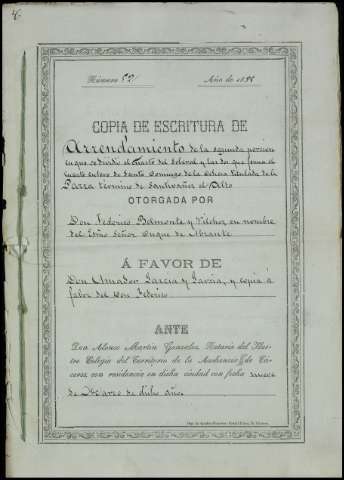 Número 52
Año de 1898
COPIA DE ESCRITURA DE
Arrendamiento de la segunda porcion
en que se dividió el Cuarto del Solerol y las dos que forma el
Cuarto entero de Santo Domingo de la dehesa titulada de la
Parra término de Santivañez el Alto
OTORGADA POR
Don Federico Belmonte y Vilches, en nombre
del Exmo Señor Duque de Abrante
Á FAVOR DE
Don Amador García y García, y copia á
favor del Don Federico
ANTE
Don Alonso Martin Gonzalez, Notario del Ilus-
tre Colegio del Territorio de la Audiencia de Cá-
ceres, con residencia en dicha ciudad con fecha
de Marzo de dicho año.